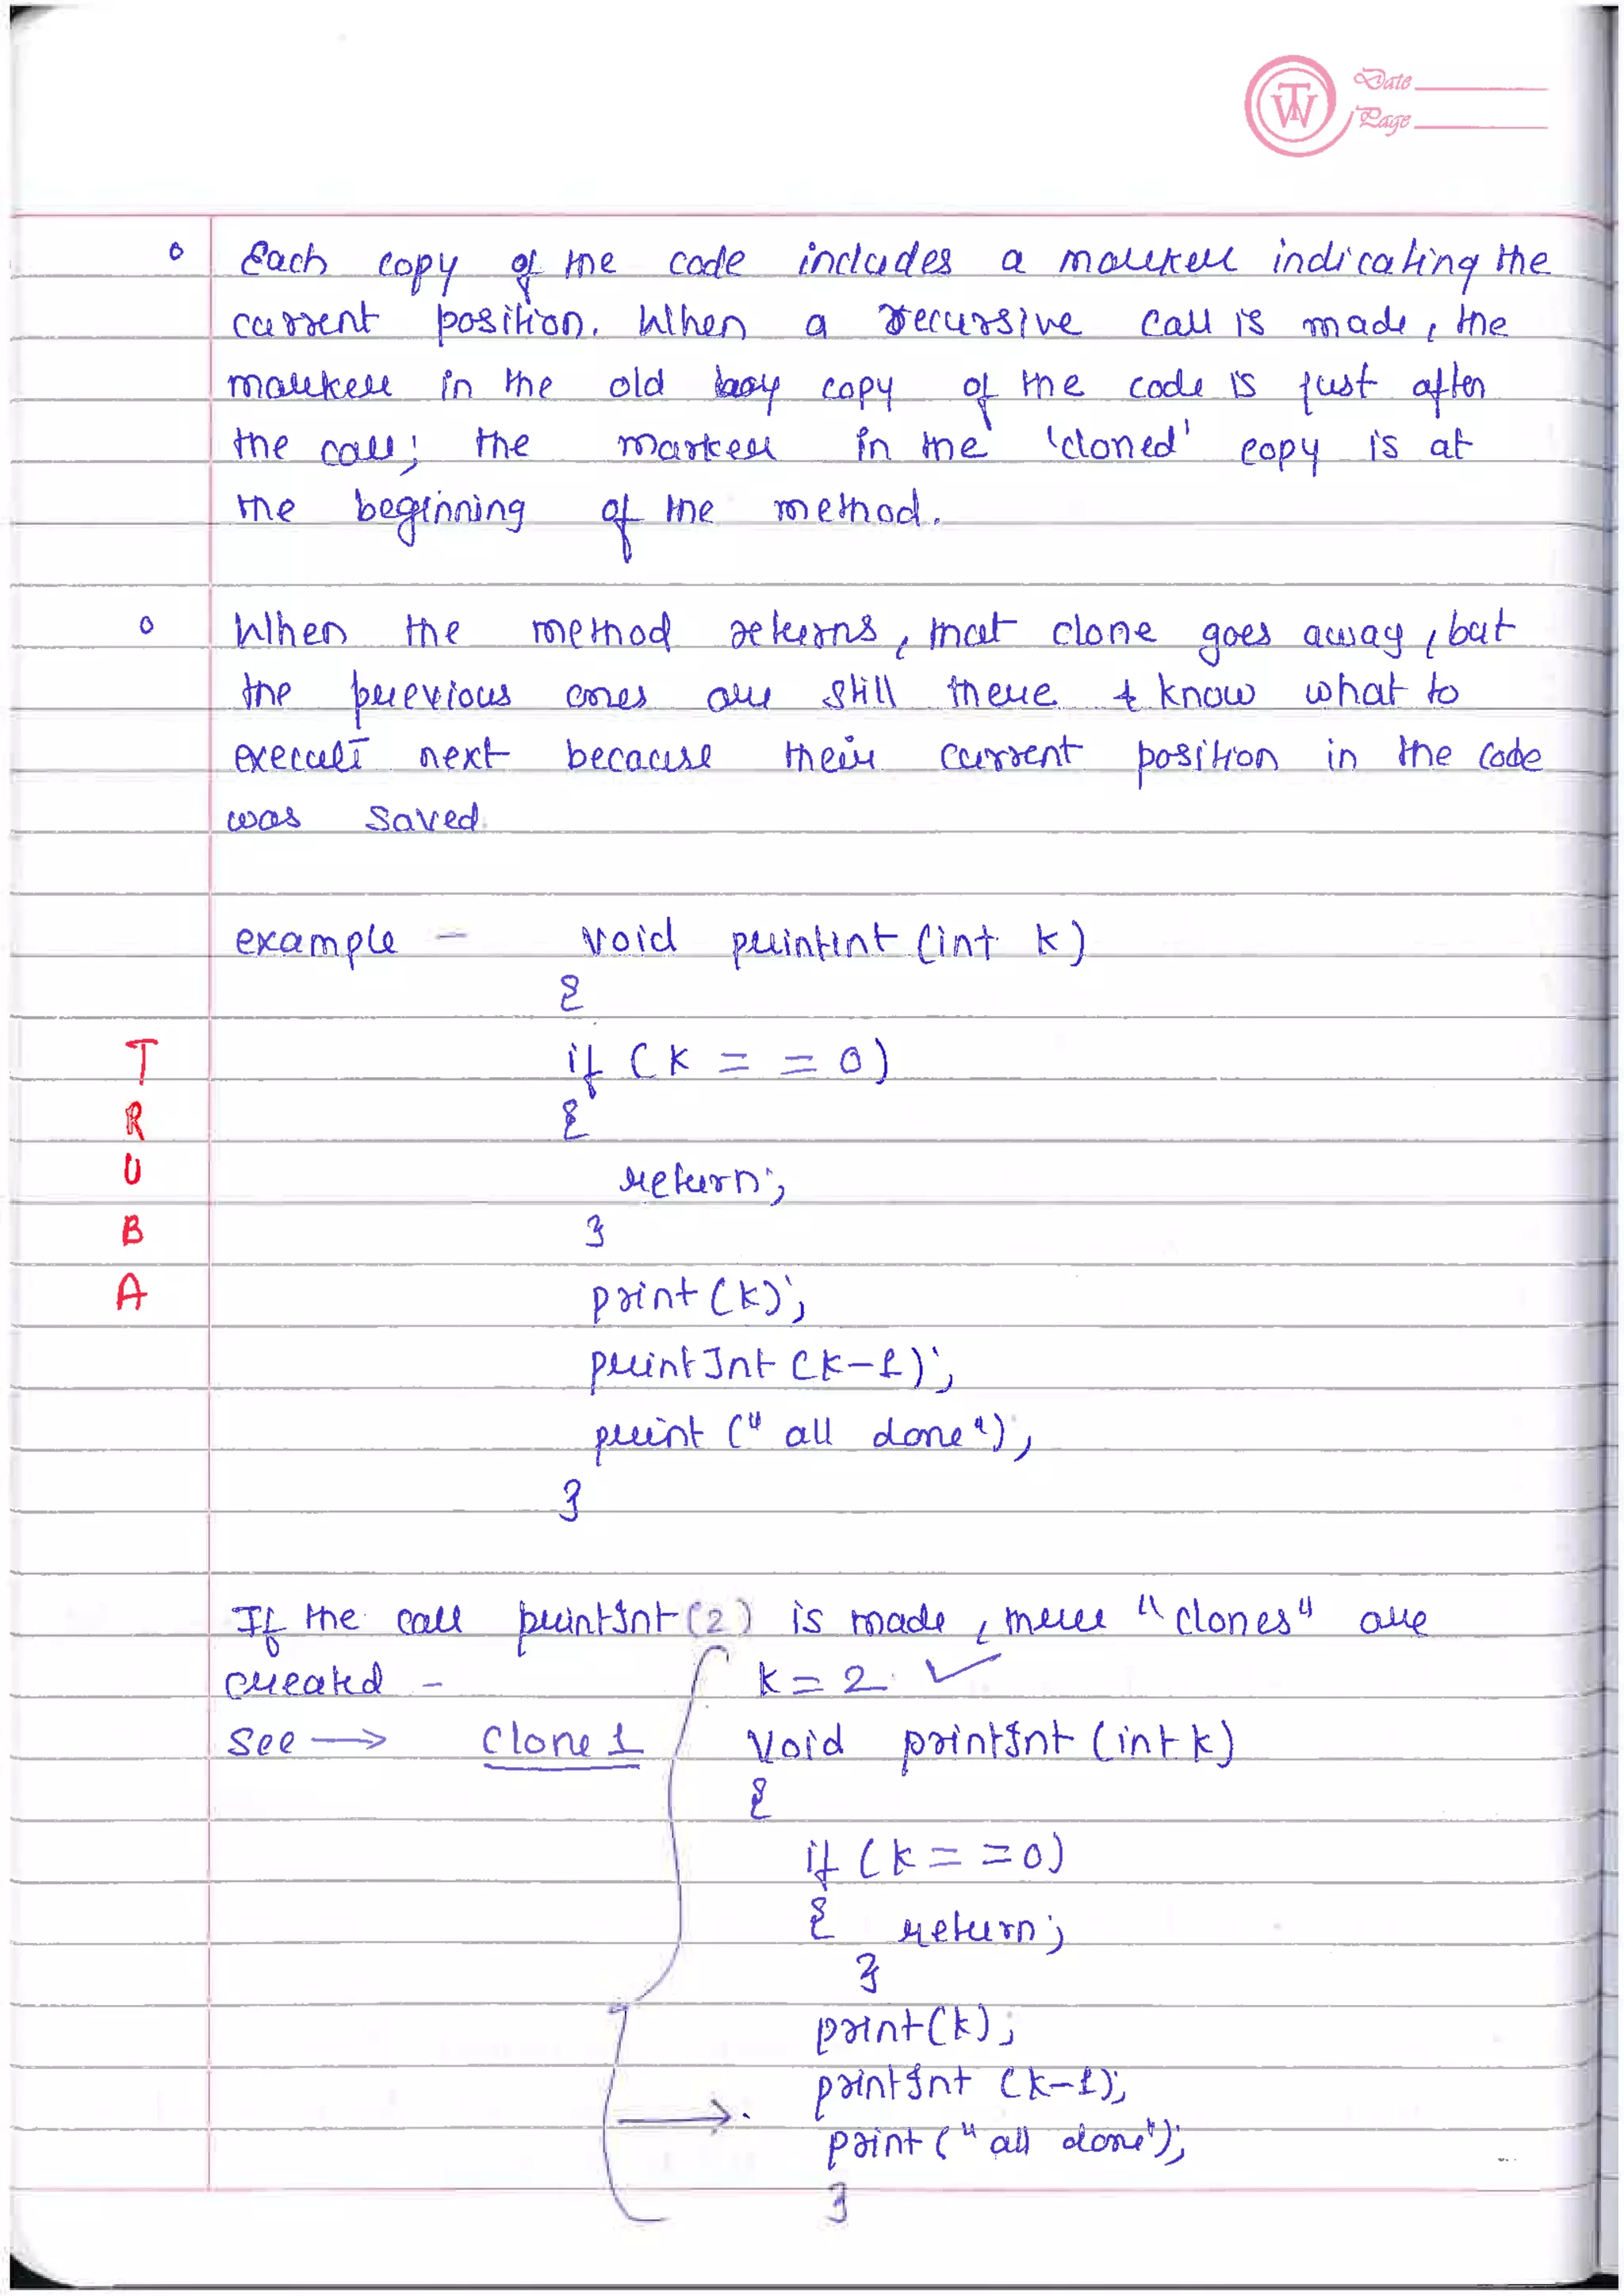 TW Date
Page
Each copy of the code includes a marker indicating the
current position. When a recursive call is made, the
marker in the old copy of the code is just after
the call; the marker in the 'cloned' copy is at
the beginning of the method.
When the method returns, that clone goes away, but
the previous ones are still there & know what to
execute next because their current position in the code
was saved.
example - void printint (int k)
{
T if (k = = 0)
R {
U return;
B }
A print (k);
printInt (k-1);
print (" all done");
}
If the call printInt (2) is made, three "clones" are
created - k = 2 ✓
See → Clone 1 Void printInt (int k)
{
if (k = = 0)
{ return;
}
print(k);
printInt (k-1);
→ print (" all done");
}